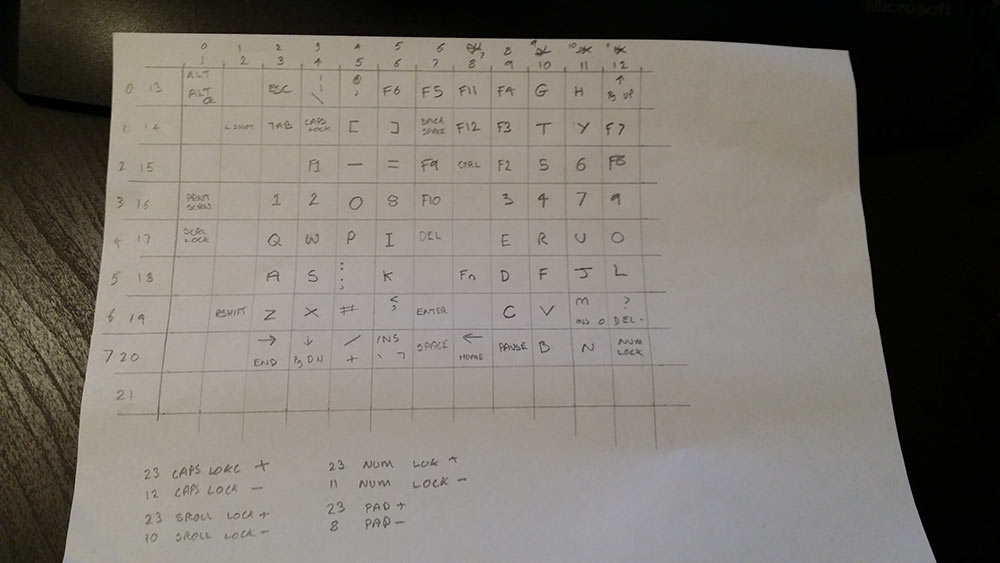 Microsoft
0 1 2 3 4 5 6 8
1 2 3 4 5 6 7 8 9 10 11 12
ALT
0 13 ALT GR ESC ¦ \ @ ' F6 F5 F11 F4 G H ↑ Pg UP
1 14 L SHIFT TAB CAPS LOCK [ ] BACK SPACE F12 F3 T Y F7
2 15 F1 – = F9 CTRL F2 5 6 F8
3 16 PRNT SCRN 1 2 0 8 F10 3 4 7 9
4 17 SCRL LOCK Q W P I DEL E R U O
5 18 A S : ; K Fn D F J L
6 19 RSHIFT Z X # < , ENTER C V M INS 0 ? DEL .
7 20 → END ↓ Pg DN / + INS ` ¬ SPACE ← HOME PAUSE B N NUM LOCK
21
23 CAPS LOKC + 23 NUM LOK +
12 CAPS LOCK – 11 NUM LOCK –
23 SROLL LOCK + 23 PAD +
10 SROLL LOCK – 8 PAD –